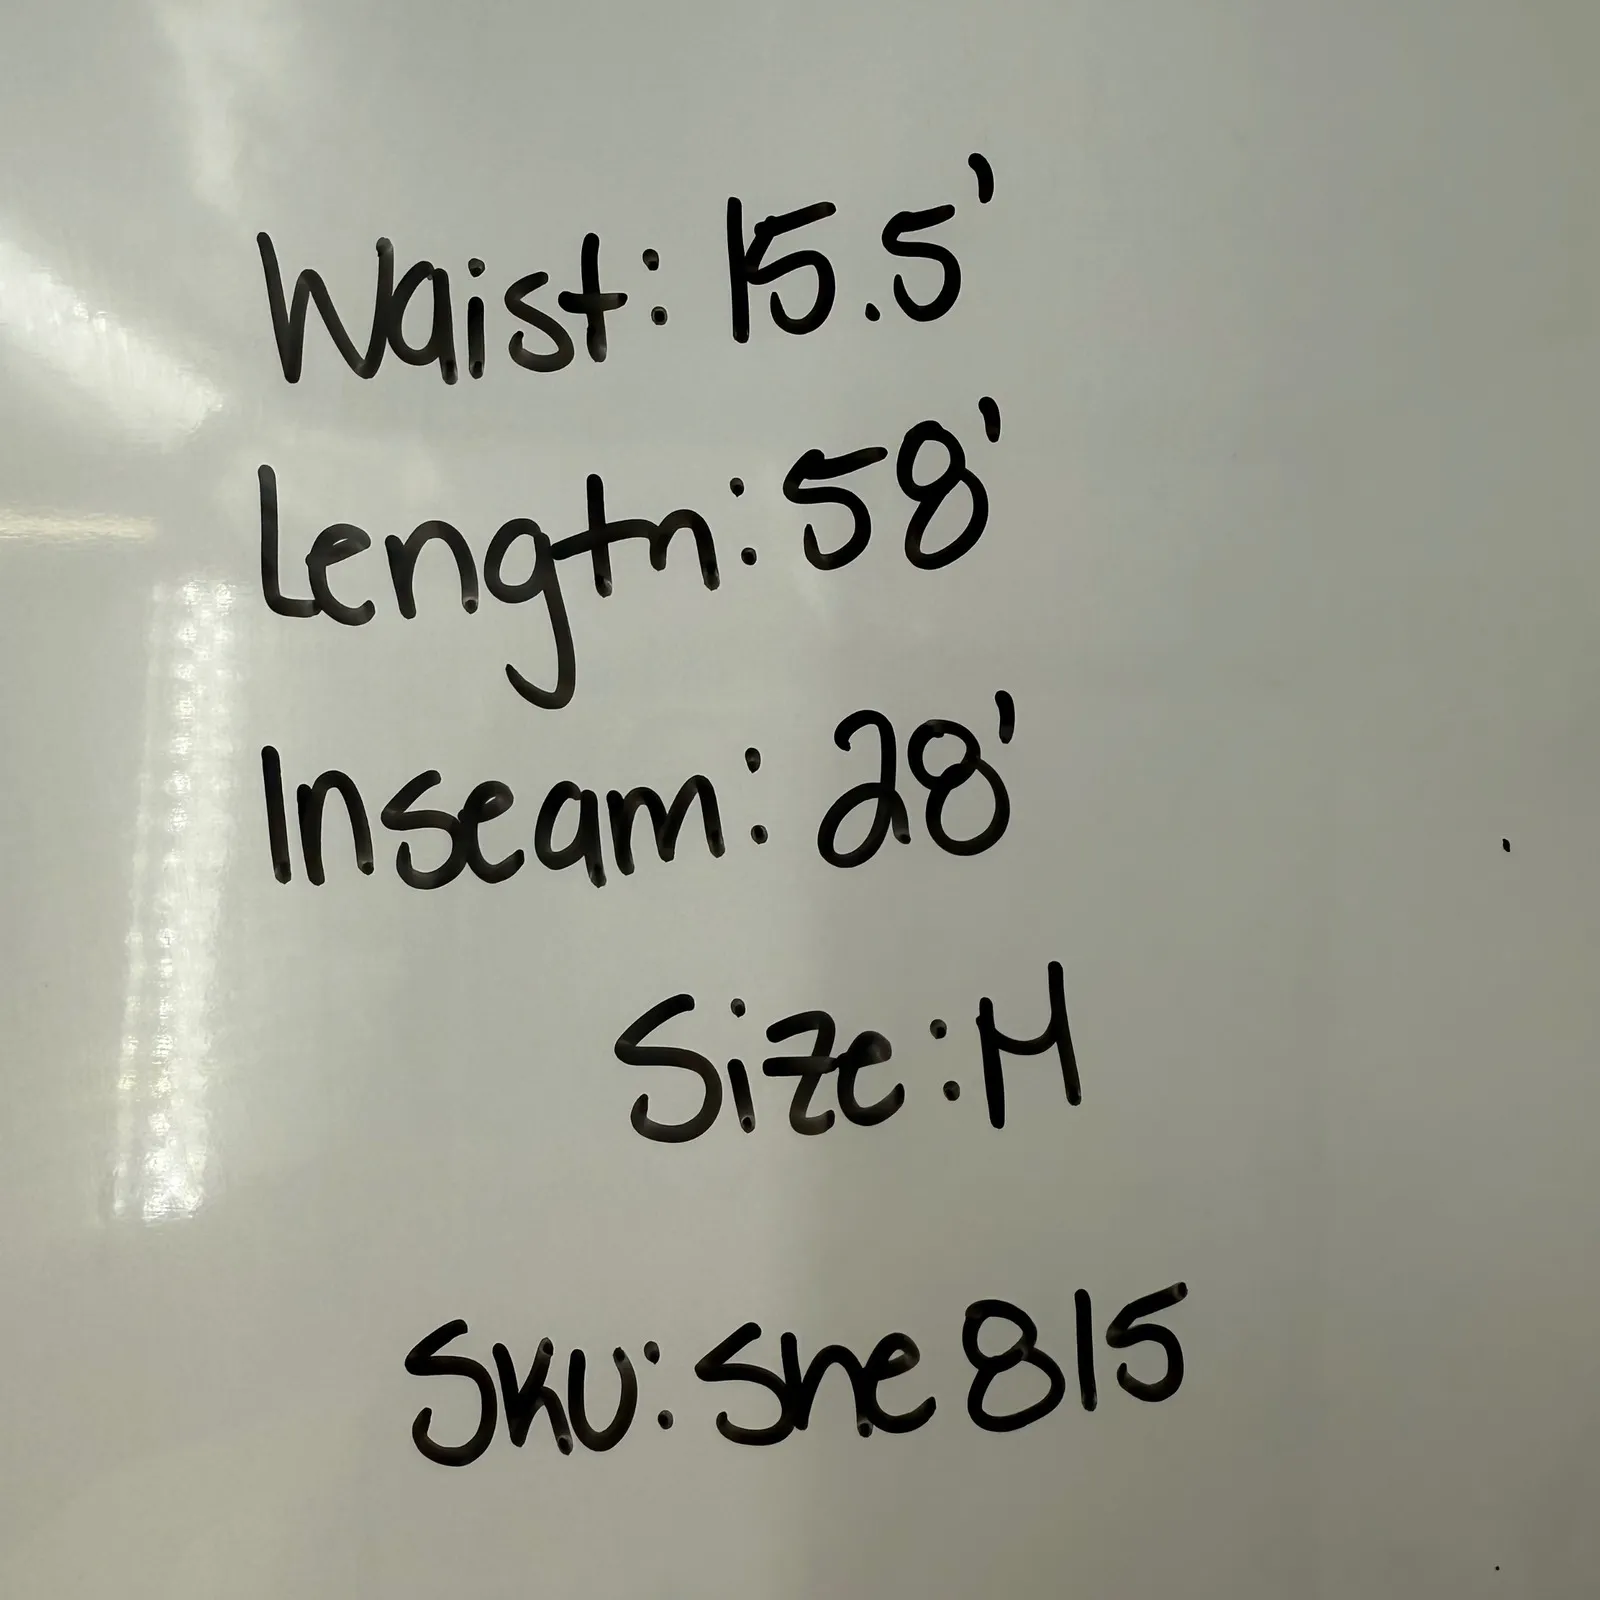 Waist: 15.5'
Length: 58'
Inseam: 28'
Size: M
SKU: She 815